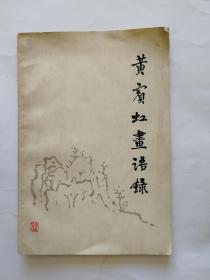 黄宾虹畫語錄